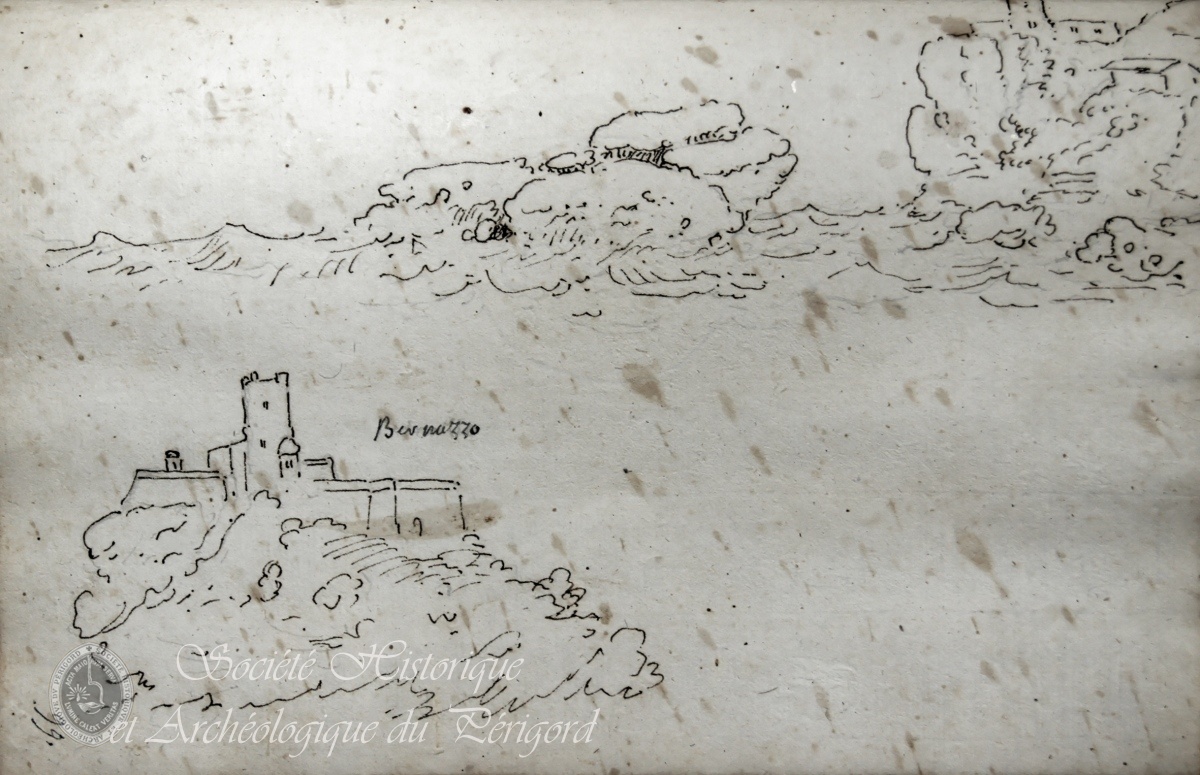 Bernazzo
Société Historique
et Archéologique du Périgord